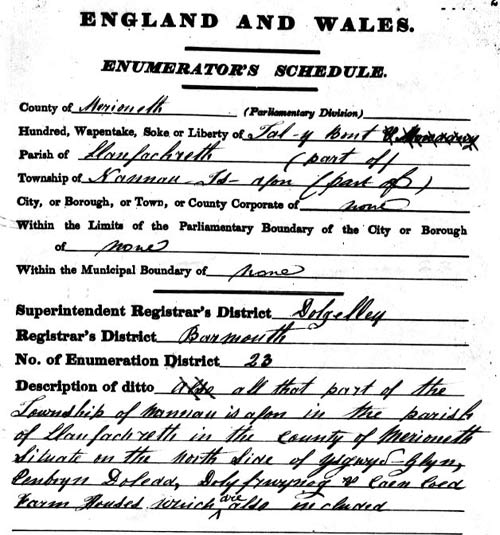 ENGLAND AND WALES.
ENUMERATOR'S SCHEDULE.
County of Merioneth (Parliamentary Division)
Hundred, Wapentake, Soke or Liberty of Tal-y Bont &
Parish of Llanfachreth (part of)
Township of Nannau-Is-afon (part of)
City, or Borough, or Town, or County Corporate of none
Within the Limits of the Parliamentary Boundary of the City or Borough
of none
Within the Municipal Boundary of none
Superintendent Registrar's District Dolgelley
Registrar's District Barmouth
No. of Enumeration District 23
Description of ditto also all that part of the
Township of Nannau is afon in the parish
of Llanfachreth in the County of Merioneth
Situate on the North Side of Ysgwyd-Glyn,
Penbryn Doledd, & Caen Coed
Farm Houses which are also included